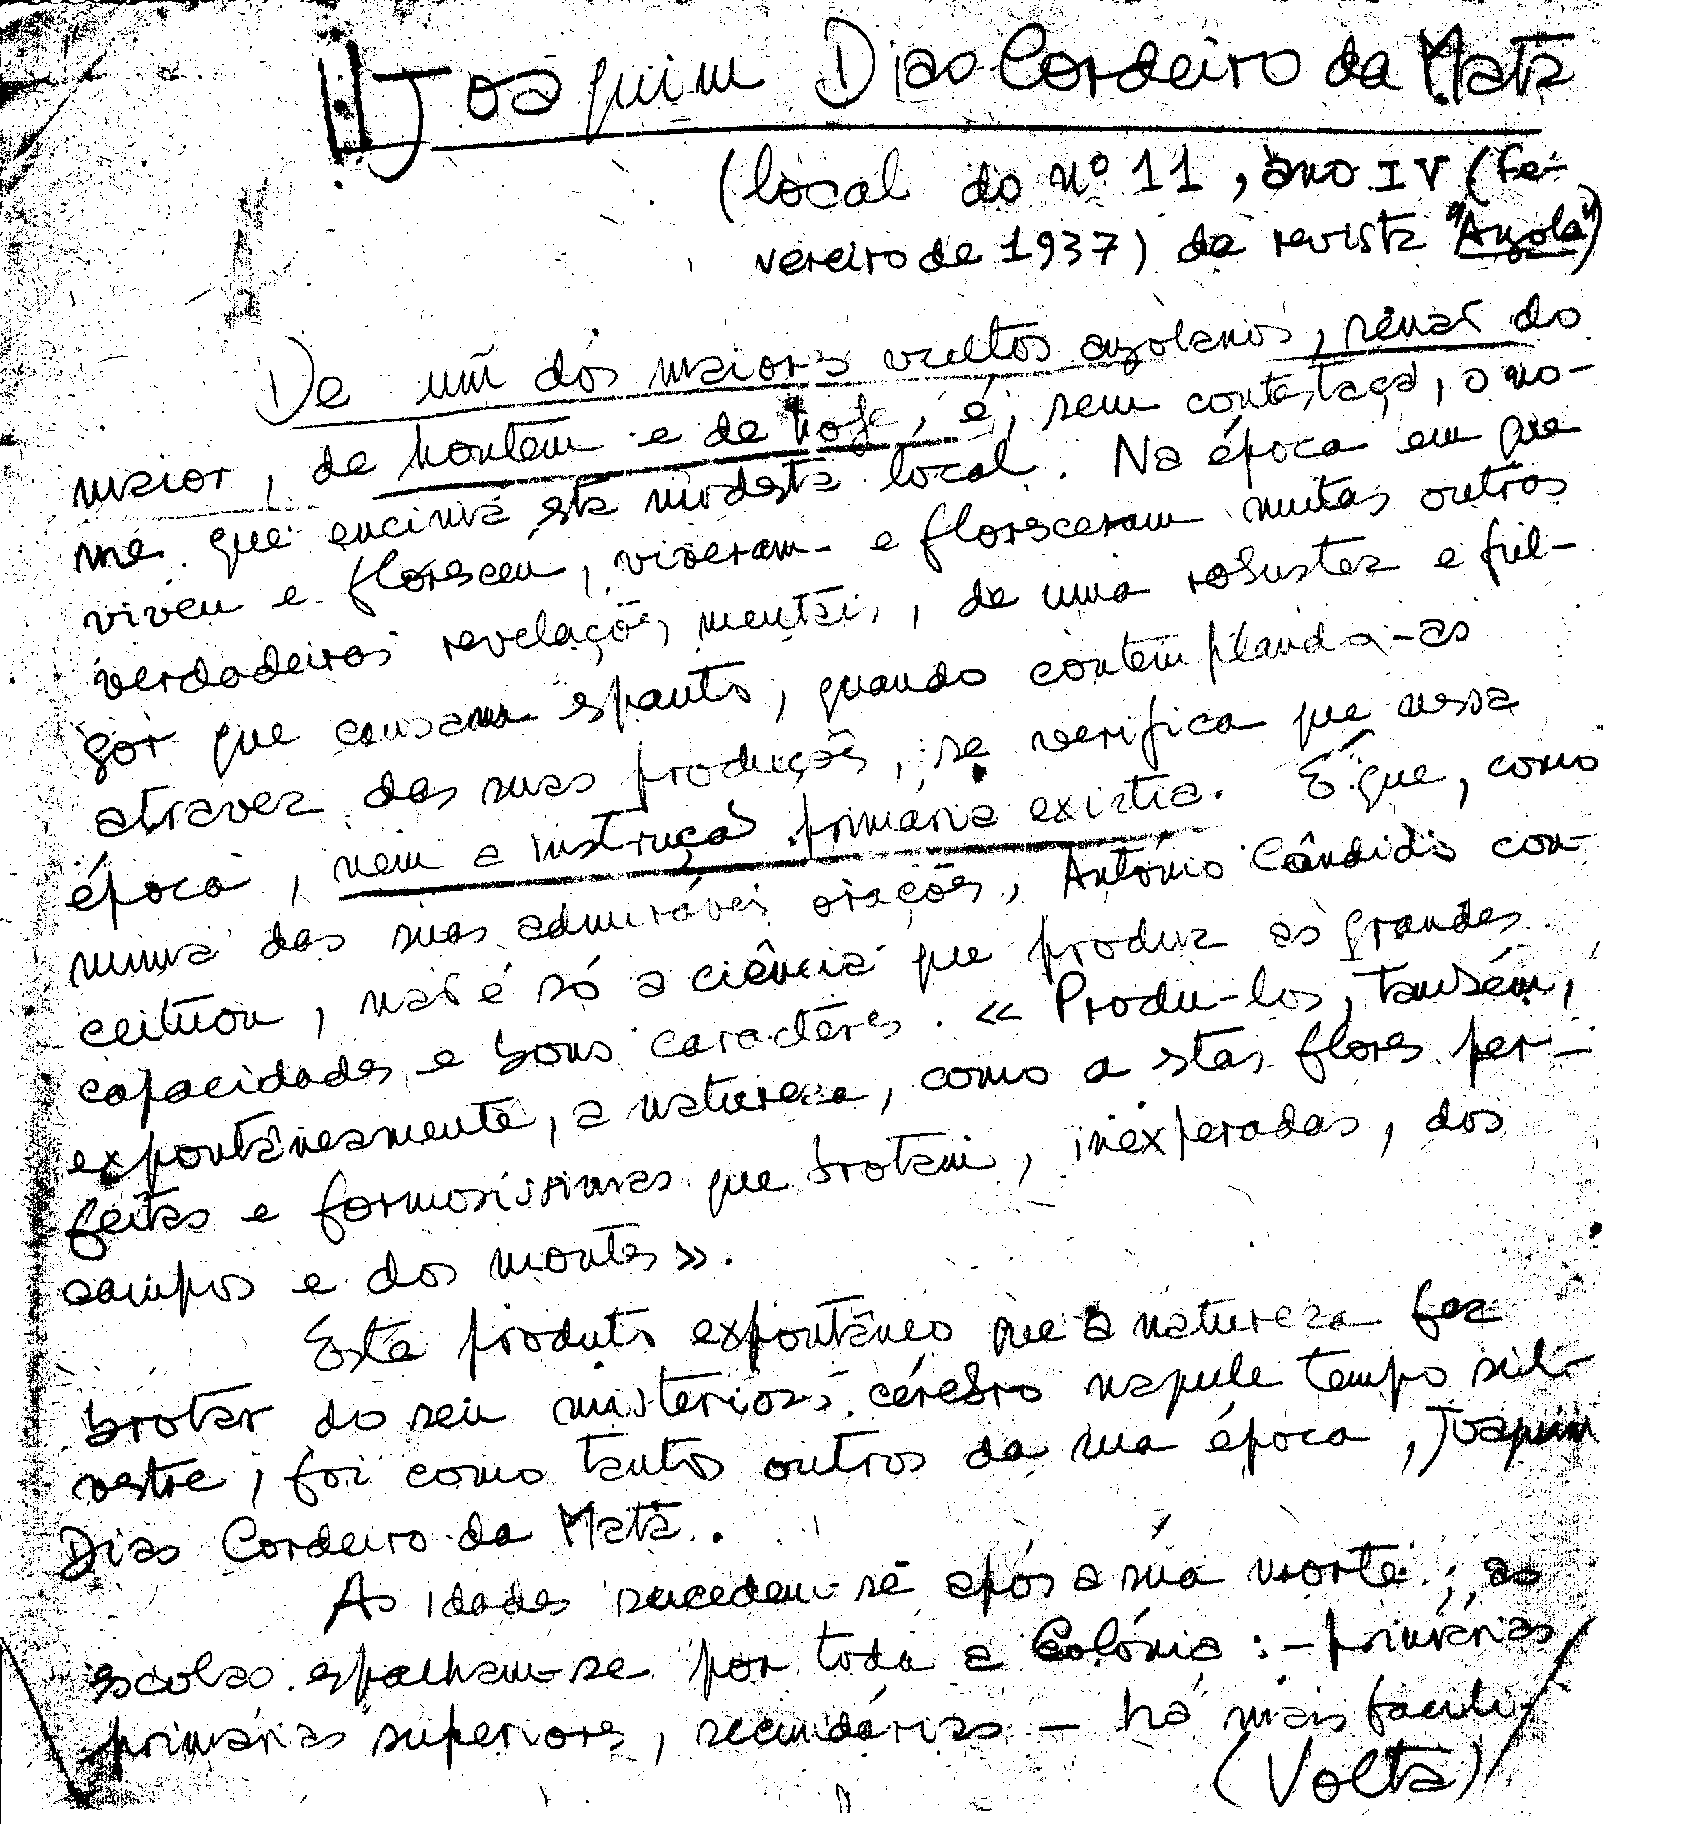 Joaquim Dias Cordeiro da Mata
(local do nº 11, ano IV (Fe-
vereiro de 1937) da revista "Angola")
De um dos maiores vultos angolanos, senão do
maior, de hontem e de hoje, é, sem contestação, o no-
me que encima esta modesta local. Na época em que
viveu e floresceu, viveram e floresceram muitas outras
verdadeiras revelações mentais, de uma robustez e ful-
gor que causam espanto, quando contemplando-as
atravez das suas produções, se verifica que nessa
época, nem a instrução primária existia. É que, como
numa das suas admiráveis orações, António Cândido con-
ceituou, não é só a ciência que produz as grandes
capacidades e bons caractéres. « Produ-los, também,
expontâneamente, a natureza, como a estas flores per-
feitas e formosíssimas que brotam, inexperadas, dos
campos e dos montes ».
Este produto expontâneo que a natureza fez
brotar do seu misterioso cérebro naquele tempo sil-
vestre, foi como tantos outros da sua época, Joaquim
Dias Cordeiro da Mata.
As idades sucedem-se após a sua morte; as
escolas espalham-se por toda a Colónia: - primárias
primárias superiores, secundárias - há mais facili-
(Volta)